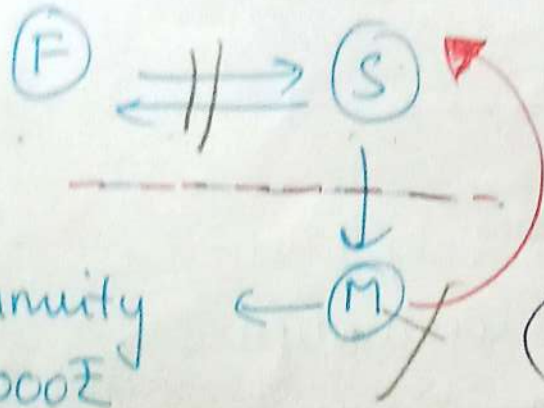 F S
M
nuity
000₹